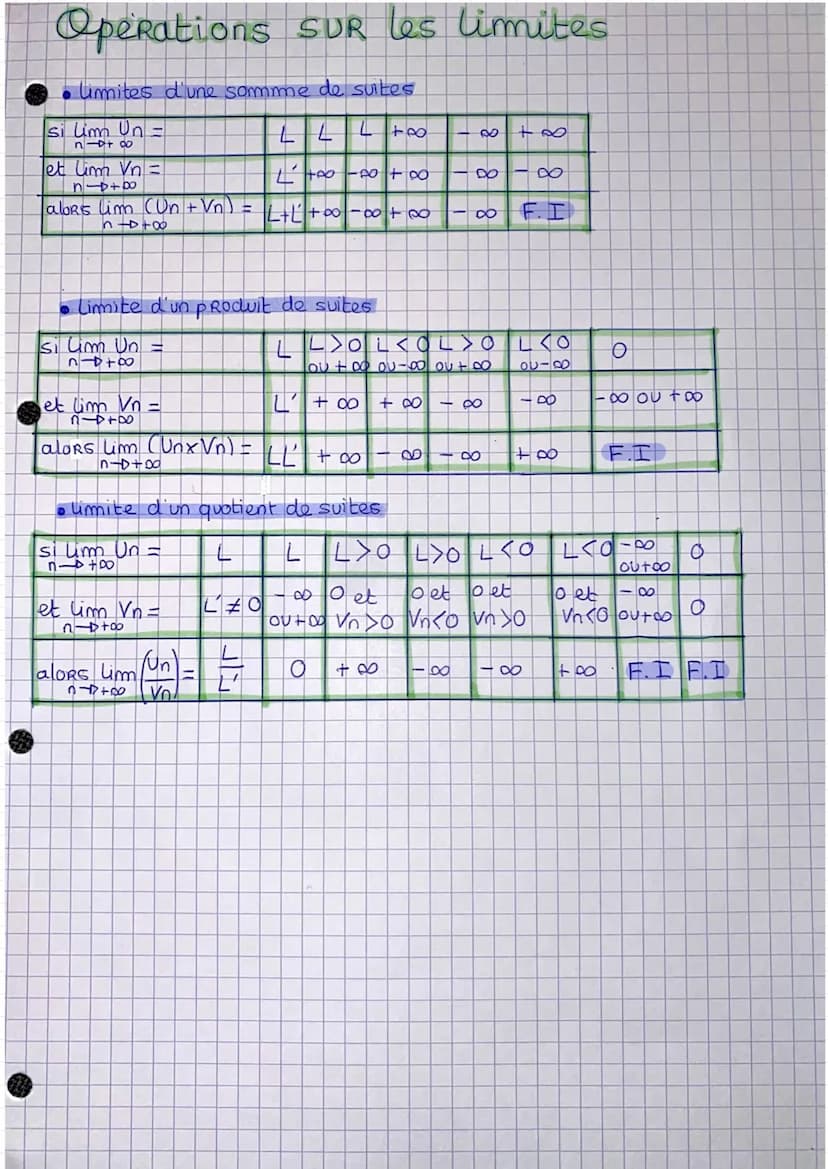 Opérations sur les limites
• limites d'une somme de suites
si lim Un = L L L +∞ -∞ +∞
n→+∞
et lim Vn = L' +∞ -∞ +∞ -∞ -∞
n→+∞
alors lim (Un + Vn) = L+L' +∞ -∞ +∞ -∞ F.I
n→+∞
• limite d'un produit de suites
si lim Un = L L>0 L<0 L>0 L<0 0
n→+∞ ou +∞ ou -∞ ou +∞ ou -∞
et lim Vn = L' +∞ +∞ -∞ -∞ -∞ ou +∞
n→+∞
alors lim (Un×Vn) = LL' +∞ -∞ -∞ +∞ F.I
n→+∞
• limite d'un quotient de suites
si lim Un = L L L>0 L>0 L<0 L<0 -∞ 0
n→+∞ ou +∞
et lim Vn = L'≠0 -∞ 0 et 0 et 0 et 0 et -∞ 0
n→+∞ ou +∞ Vn>0 Vn<0 Vn>0 Vn<0 ou +∞
alors lim (Un/Vn) = L/L' 0 +∞ -∞ -∞ +∞ F.I F.I
n→+∞